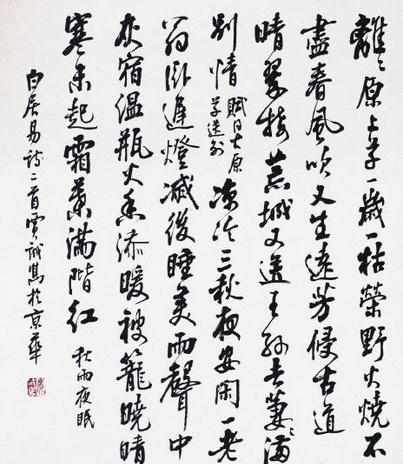 離〻原上草一歲一枯榮野火燒不
盡春風吹又生遠芳侵古道
晴翠接荒城又送王孫去萋〻滿
別情 賦得古原草送別 涼冷三秋夜安閑一老
翁臥遲燈滅後睡美雨聲中
灰宿溫瓶火香添暖被籠曉晴
寒未起霜葉滿階紅 秋雨夜眠
白居易詩二首賈誠寫於京華